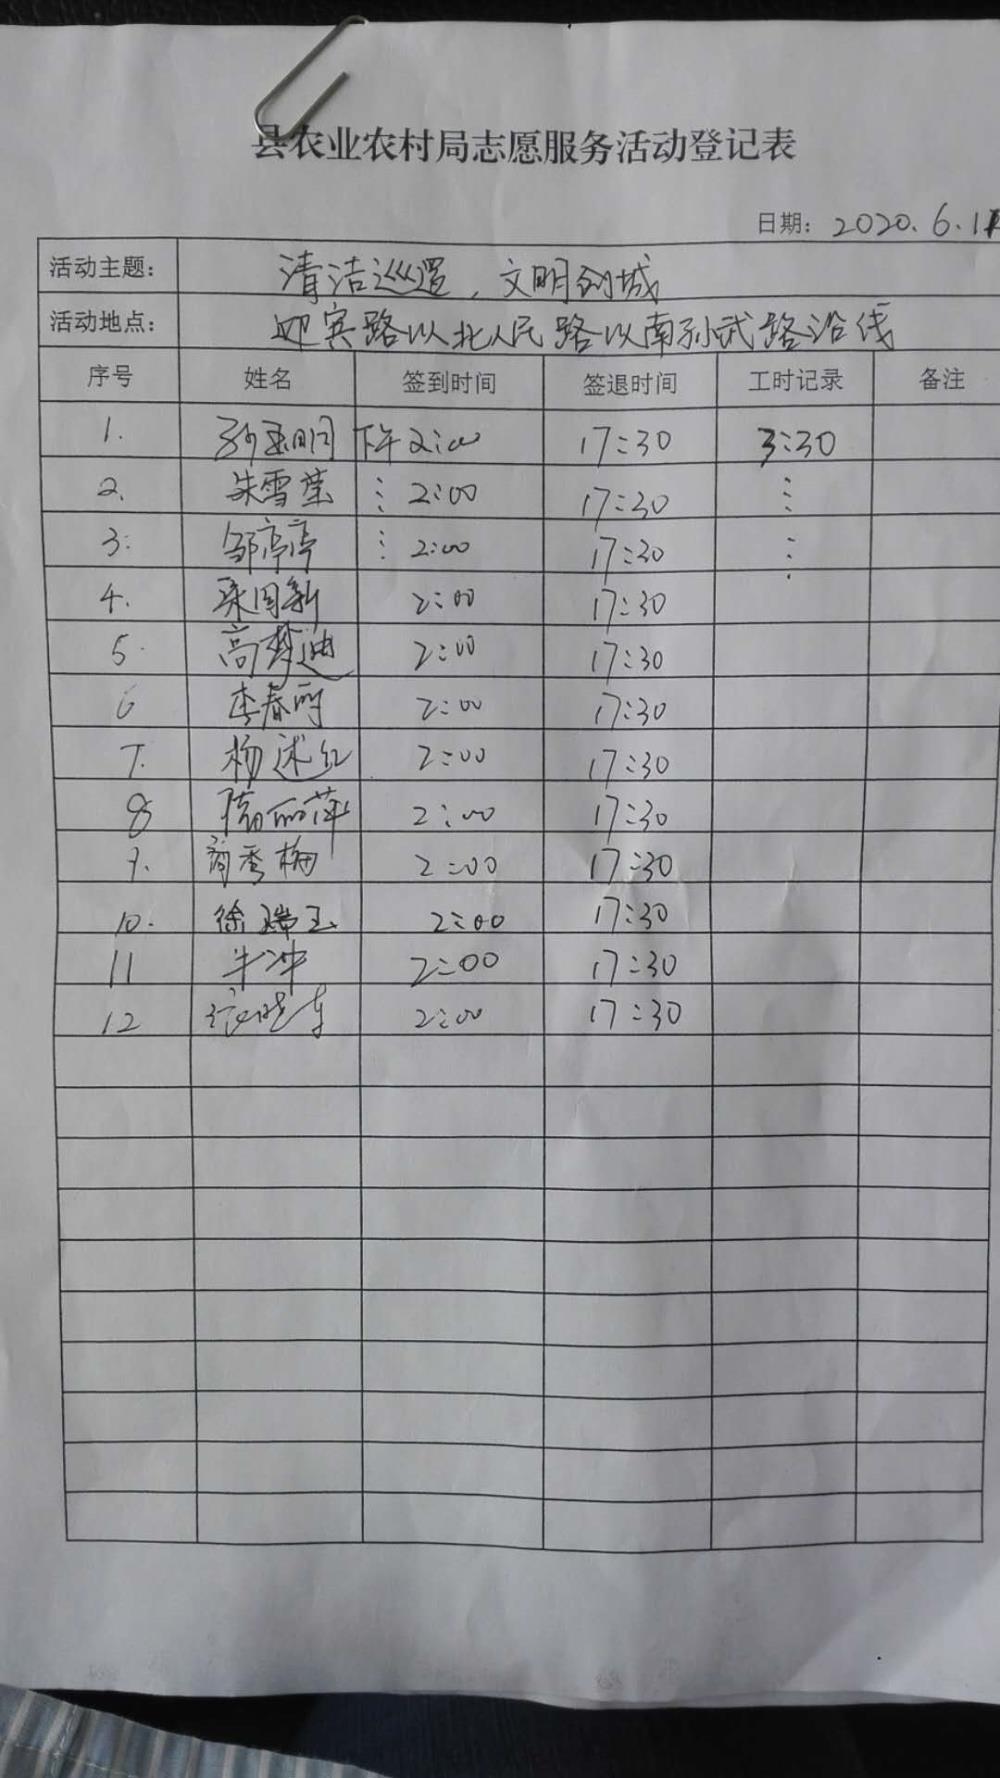 县农业农村局志愿服务活动登记表
日期：2020.6.1
活动主题： 清洁巡逻，文明创城
活动地点： 迎宾路以北人民路以南孙武路沿线
序号 姓名 签到时间 签退时间 工时记录 备注
1. 下午2:00 17:30 3:30
2. 朱雪莹 ⋮ 2:00 17:30 ⋮
3. 邹亭亭 ⋮ 2:00 17:30 ⋮
4. 2:00 17:30
5. 高梦迪 2:00 17:30
6 李春丽 2:00 17:30
7. 杨述红 2:00 17:30
8 隋丽萍 2:00 17:30
9. 秀梅 2:00 17:30
10. 徐瑞玉 2:00 17:30
11 牛冲 2:00 17:30
12 2:00 17:30